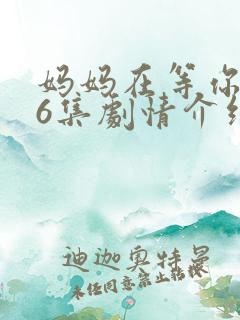 妈妈在等你
6集剧情介绍
迪迦奥特曼
未经同意禁止转载